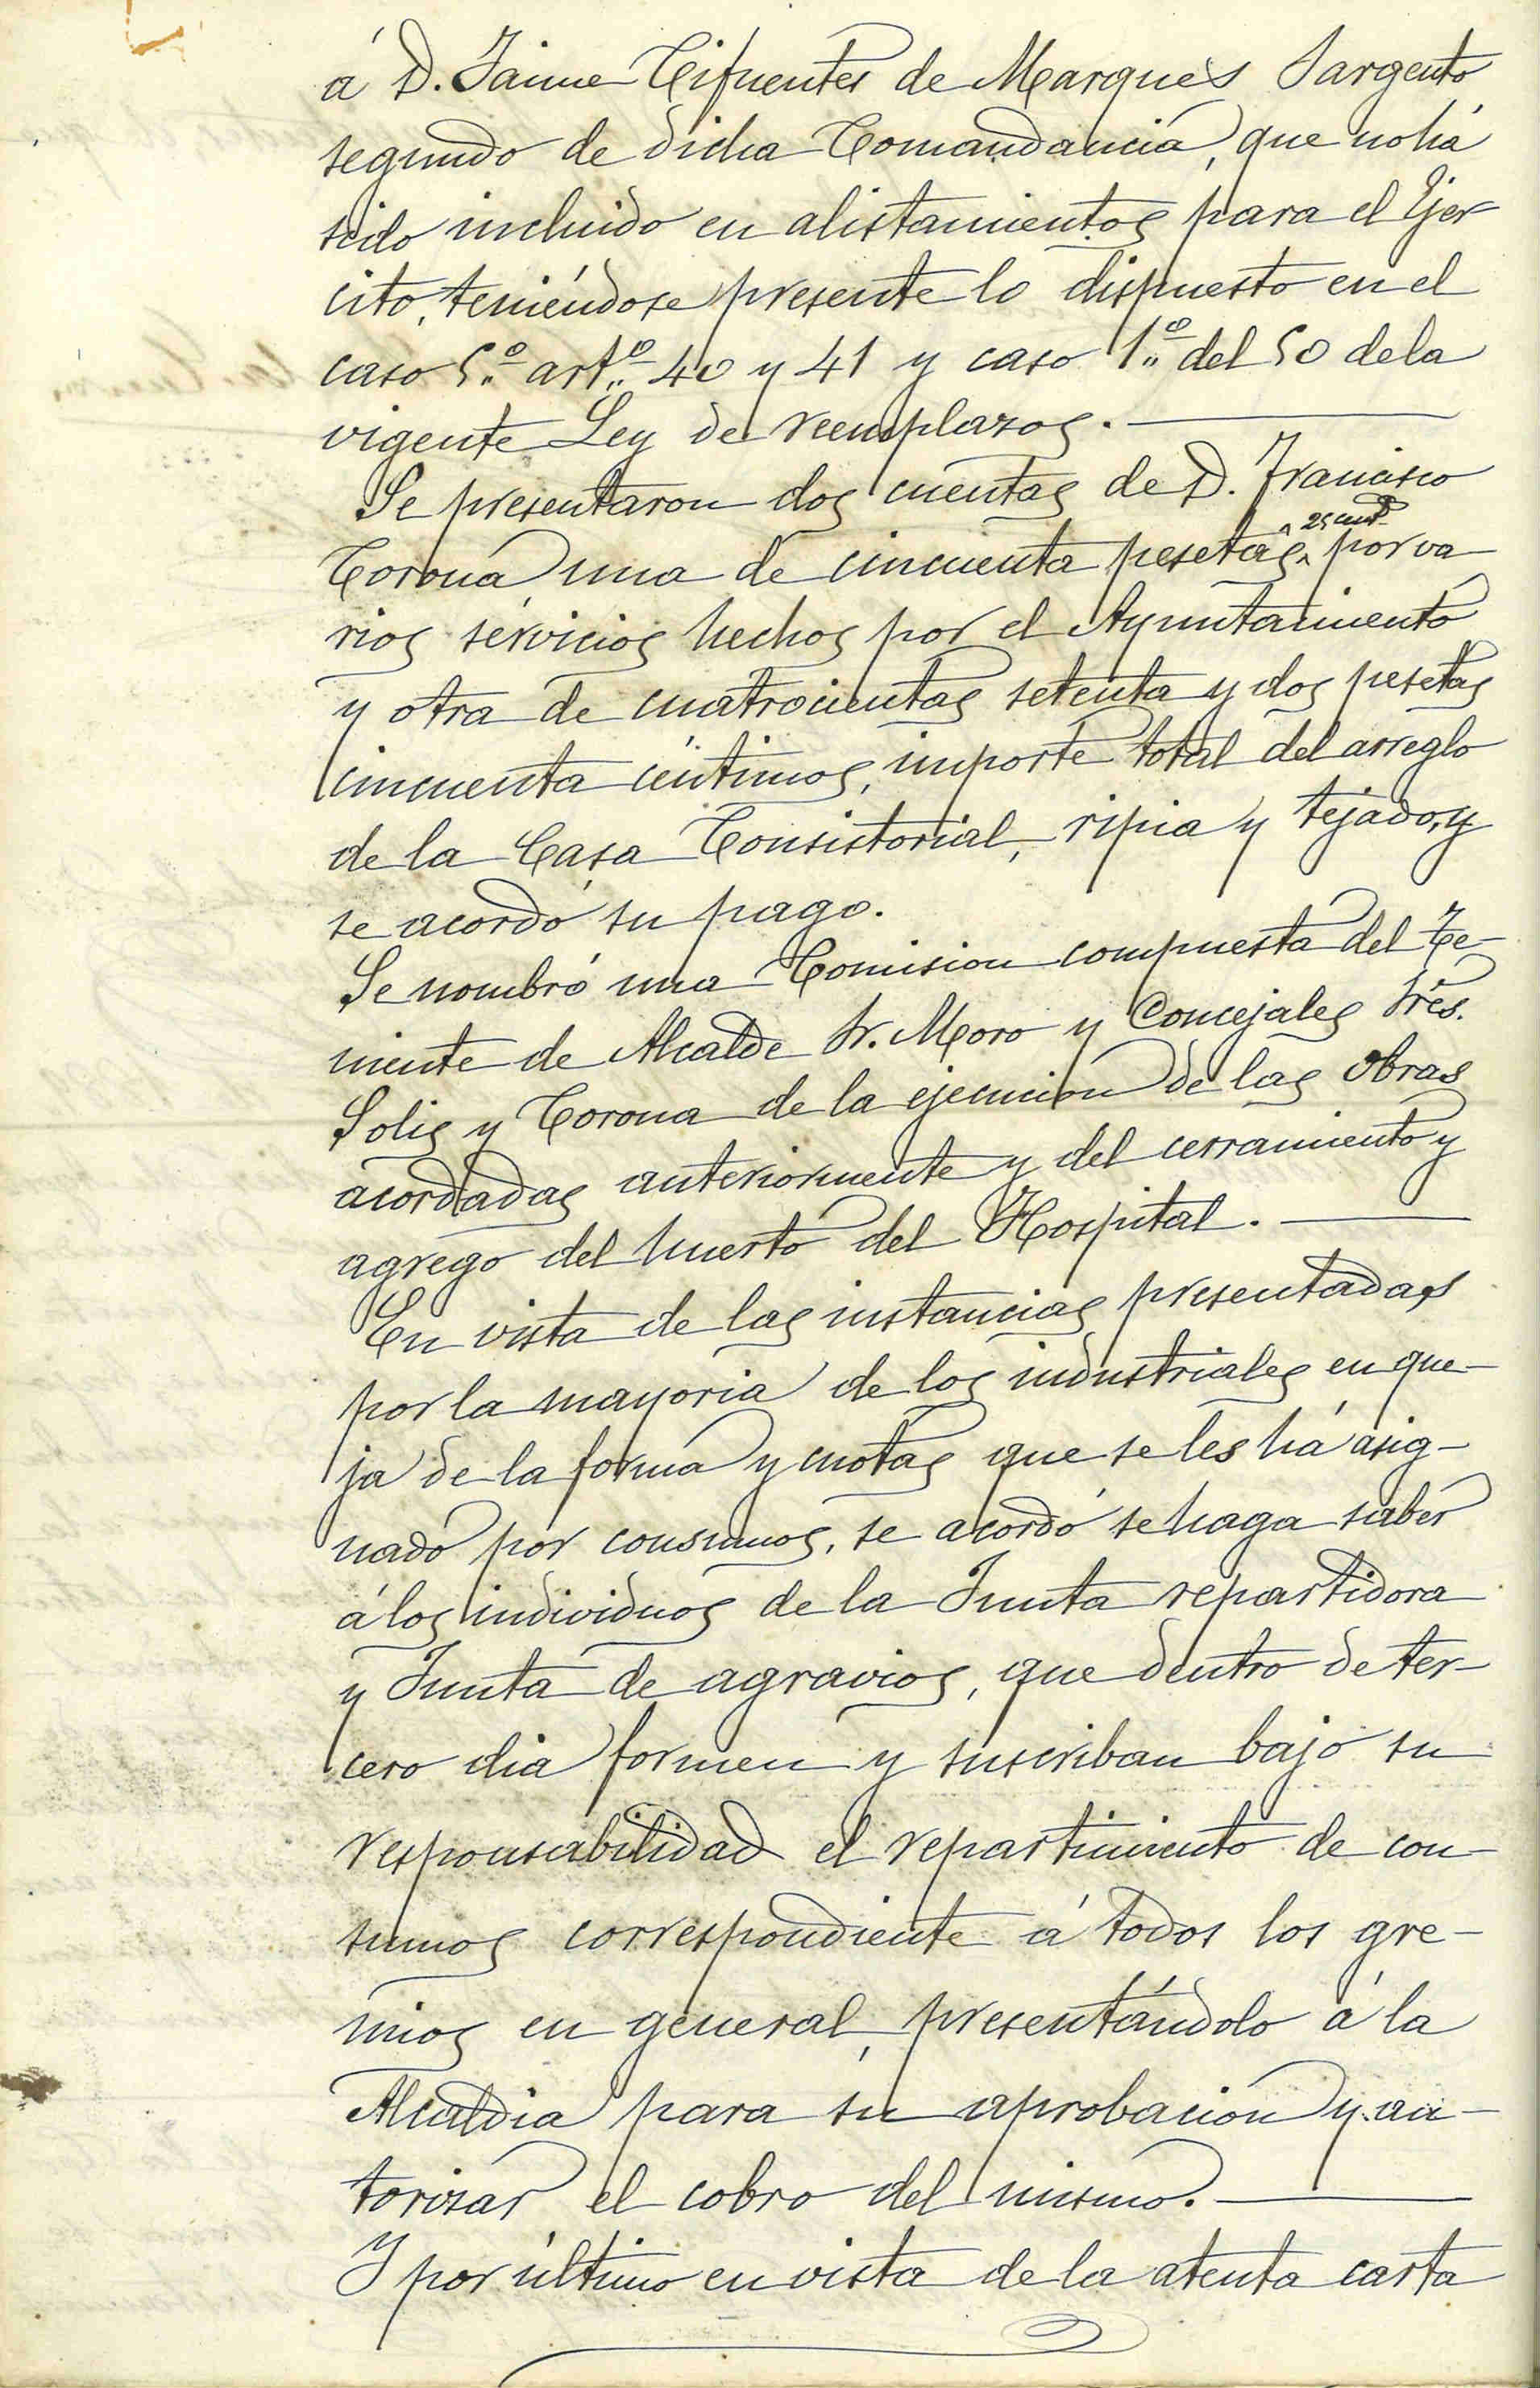 á D. Jaime Cifuentes de Marques Sargento
segundo de dicha Comandancia, que no há
sido incluido en alistamientos para el Ejer
cito, teniéndose presente lo dispuesto en el
caso 5.º art.º 40 y 41 y caso 1.º del 50 de la
vigente Ley de reemplazos.
Se presentaron dos cuentas de D. Francisco
25 cent.
Corona, una de cincuenta pesetas por va
rios servicios hechos por el Ayuntamiento
y otra de cuatrocientas setenta y dos pesetas
cincuenta céntimos, importe total del arreglo
de la Casa Consistorial, ripia y tejado, y
se acordó su pago.
Se nombró una Comision compuesta del Te-
niente de Alcalde Sr. Moro y Concejales Sres.
Solis y Corona de la ejecucion de las obras
acordadas anteriormente y del cerramiento y
agrego del huerto del Hospital.
En vista de las instancias presentadas
por la mayoria de los industriales en que-
ja de la forma y cuotas que se les há asig-
nado por consumos, se acordó se haga saber
á los individuos de la Junta repartidora
y Junta de agravios, que dentro de ter-
cero dia formen y suscriban bajo su
responsabilidad el repartimiento de con-
sumos correspondiente á todos los gre-
mios en general, presentándolo á la
Alcaldia para su aprobacion y au-
torizar el cobro del mismo.
Y por último en vista de la atenta carta